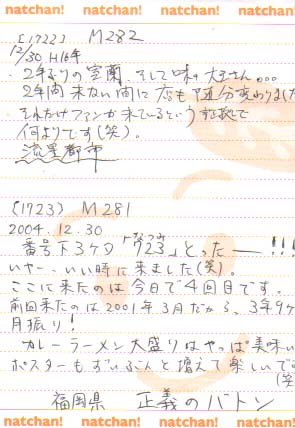 natchan! natchan! natchan! natchan!
[1722] M282
12/30 H16年
2年ぶりの室蘭、そして味の大王さん。。。
2年間来ない間に店も随分変わりました
それだけファンが来ているという証拠で
何よりです(笑)。
流星都市
(1723) M281
2004.12.30
番号下3ケタ「723」とったー!!!
なつみ
いやー、いい時に来ました(笑)。
ここに来たのは今日で4回目です。
前回来たのは2001年3月だから、3年9ヶ
月振り!
カレーラーメン大盛りはやっぱ美味い
ポスターもずいぶんと増えて楽しいで
(笑
福岡県 正義のバトン
natchan! natchan! natchan! natchan!